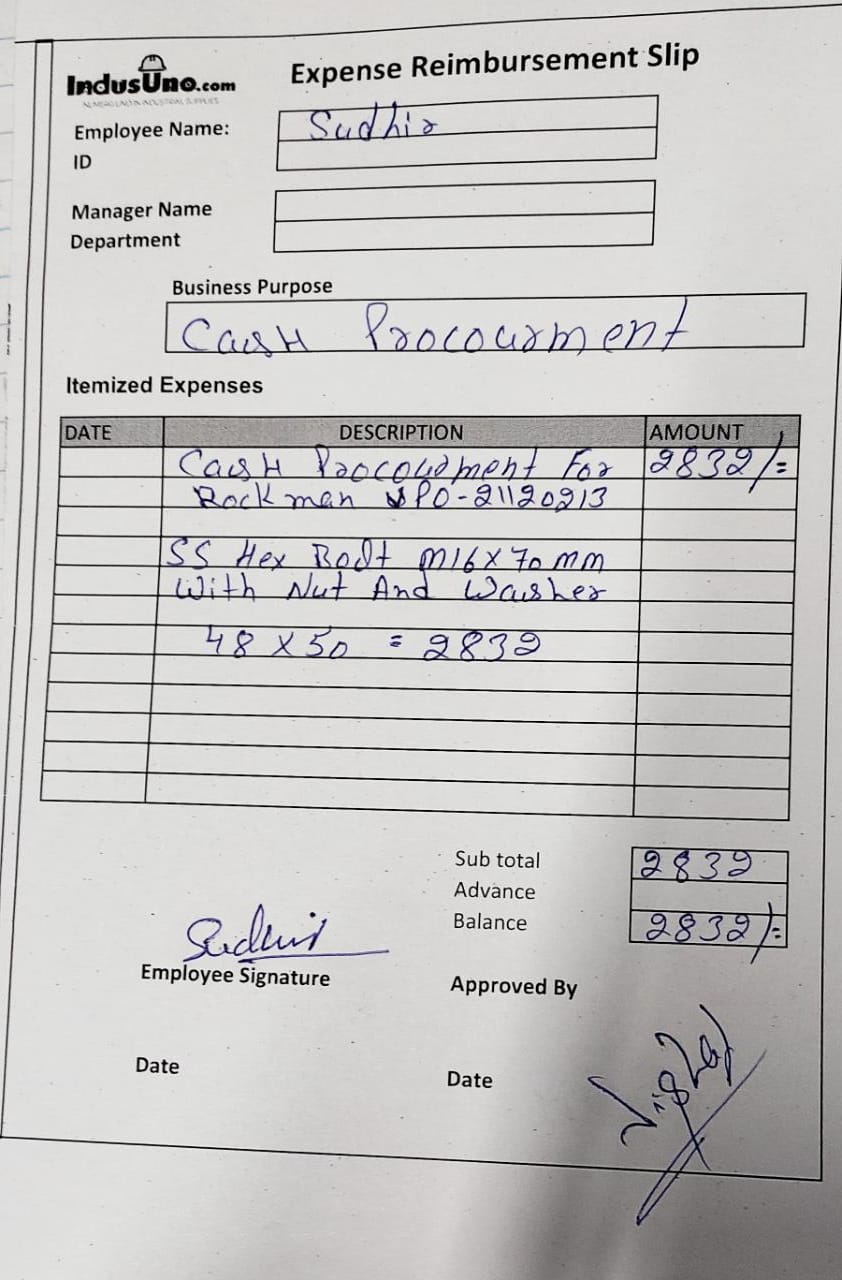 IndusUno.com
NUMERO UNO IN INDUSTRIAL SUPPLIES
Expense Reimbursement Slip
Employee Name: Sudhir
ID
Manager Name
Department
Business Purpose
Cash Procourment
Itemized Expenses
DATE DESCRIPTION AMOUNT
Cash Procourment For 2832/=
Rockman PO-21120213
SS Hex Bolt M16X70mm
With Nut And Washer
48 X 50 = 2832
Sub total 2832
Advance
Balance 2832/=
Sudhir
Employee Signature
Approved By
Date
Date